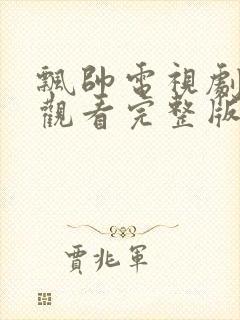 飄帥電視劇
觀看完整版
賈兆軍